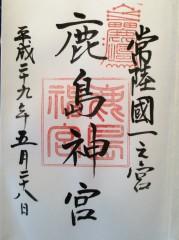 常陸國一之宮
鹿島神宮
平成二十九年五月二十八日
鹿島
神宮